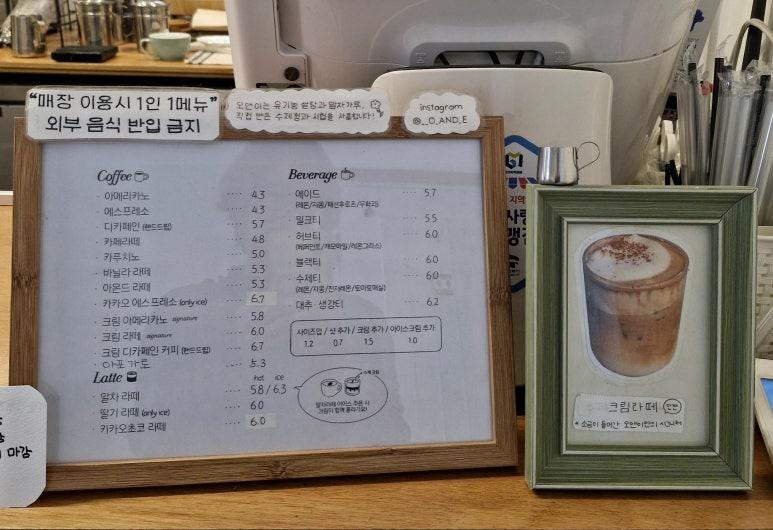 "매장 이용시 1인 1메뉴"
외부 음식 반입 금지
오앤이는 유기농 쌀당과 말차가루,
직접 만든 수제청과 시럽을 사용합니다!
instagram
@__O_AND_E
Coffee
· 아메리카노 ···· 4.3
· 에스프레소 ···· 4.3
· 디카페인 (핸드드립) ···· 5.7
· 카페라떼 ···· 4.8
· 카푸치노 ···· 5.0
· 바닐라 라떼 ···· 5.3
· 아몬드 라떼 ···· 5.3
· 카카오 에스프레소 (only ice) ···· 6.7
· 크림 아메리카노 signature ···· 5.8
· 크림 라떼 signature ···· 6.0
· 크림 디카페인 커피 (핸드드립) ···· 6.7
· 아포가토 ···· 5.3
Latte
hot ice
· 말차 라떼 ···· 5.8 / 6.3
· 딸기 라떼 (only ice) ···· 6.0
· 카카오초코 라떼 ···· 6.0
Beverage
· 에이드 ···· 5.7
(레몬/자몽/패션후르츠/무화과)
· 밀크티 ···· 5.5
· 허브티 ···· 6.0
(페퍼민트/캐모마일/레몬그라스)
· 블랙티 ···· 6.0
· 수제티 ···· 6.0
(레몬/자몽/진저레몬/토마토매실)
· 대추 · 생강티 ···· 6.2
사이즈업 / 샷 추가 / 크림 추가 / 아이스크림 추가
1.2 0.7 1.5 1.0
수제 크림
말차라떼 아이스 주문 시
크림이 함께 올라가요!
크림라떼
* 소금이 들어간 오앤이만의 시그니처
지역
사랑
마감